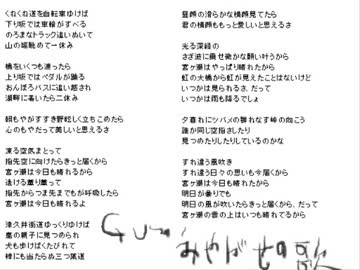 くねくね道を自転車ゆけば
下り坂では車輪がすべる
のろまなトラック追いぬいて
山の端眺めて一休み
橋をいくつも渡ったら
上り坂ではペダルが踊る
おんぼろバスに追い越され
湖畔に着いたら二休み
朝もやがすすき野眩しく立ちこめたら
心のもやだって美しいと思えるさ
凍る空気まとって
指先空に向けたらきっと届くから
宮ヶ瀬は今日も晴れるから
透ける薫り纏って
指先からつま先までもが呼吸したら
宮ヶ瀬は今日も晴れるよ
津久井街道ゆっくりゆけば
鹿の親子に見つめられ
犬も歩けばくたびれて
棒にも当たらぬ三ケ木道
昼顔の滑らかな横顔見てたら
君の横顔ももっと愛しいと思えるさ
光る深緑の
さざ波に乗せ密かな願い叶うから
宮ヶ瀬はやっぱり晴れたから
虹の大橋から虹が見えたことはないけど
いつかは見られるさ、だって
いつかは雨も降るでしょ
夕暮れにツバメの群れなす峠の向こう
誰か同じ空指さしたり
見つめたりしたりしているのかな
すれ違う風吹き
すれ違う日々の思いも今届くから
宮ヶ瀬は今日も晴れたから
明日が曇りでも
明日の風が吹いたらきっと届くから、だって
宮ヶ瀬の雲の上はいつも晴れてるから
みやがせの歌